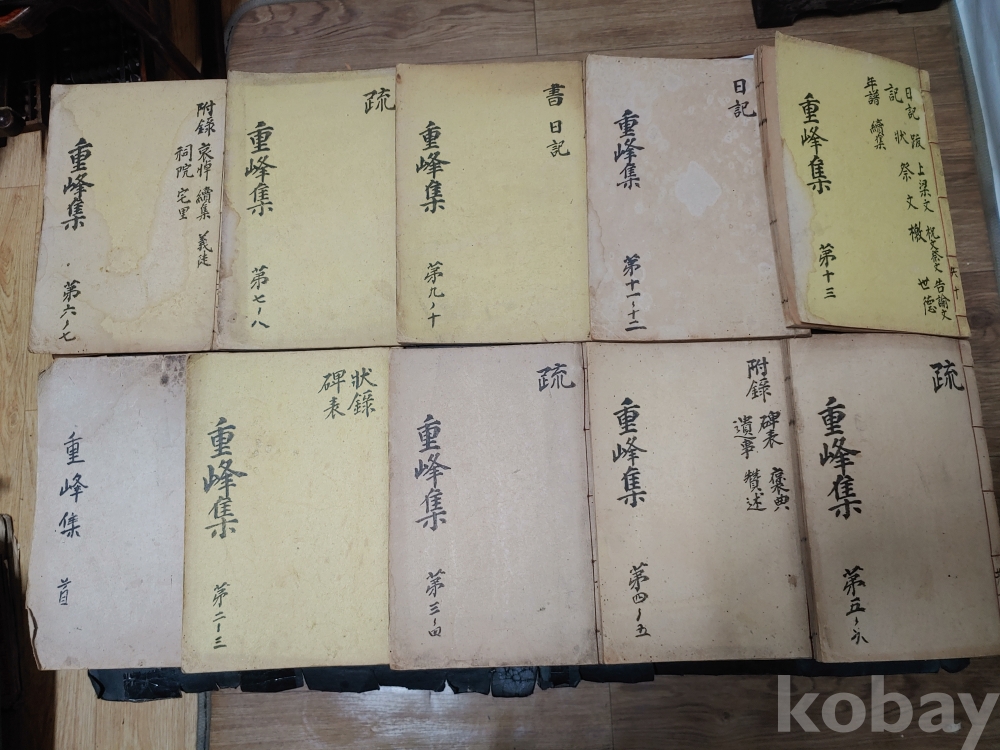 附錄 哀悼 續集 義徒
祠院 宅里
重峰集 第六~七
疏
重峰集 第七~八
書 日記
重峰集 第九~十
日記
重峰集 第十一~十二
日記 跋 上梁文 祝文祭文 告諭文
記 狀 祭文 檄 世德
年譜 續集
重峰集 第十三
共十
重峰集 首
狀錄
碑表
重峰集 第二~三
疏
重峰集 第三~四
附錄 碑表 褒典
遺事 贊述
重峰集 第四~五
疏
重峰集 第五~六
kobay